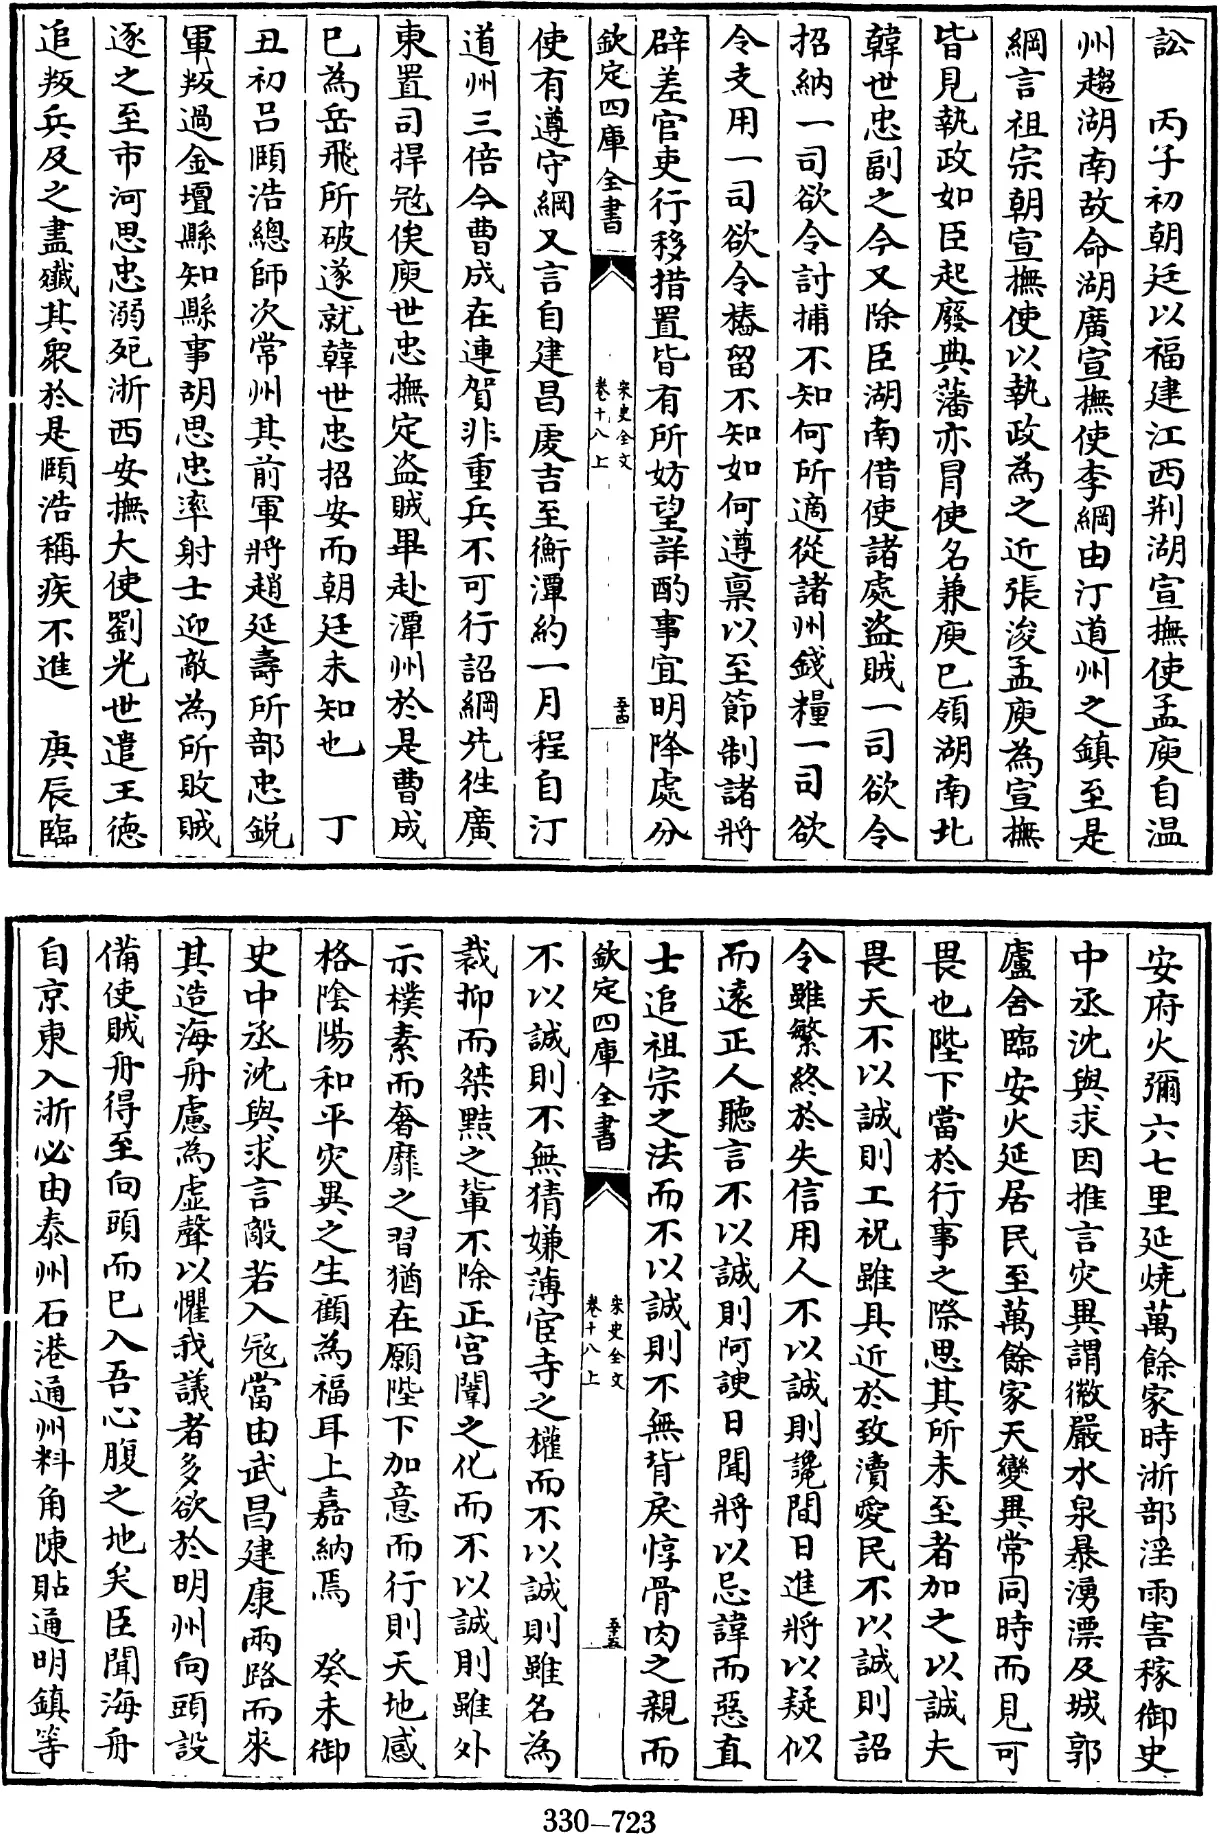 訟　丙子初朝廷以福建江西荆湖宣撫使孟庾自温
州趨湖南故命湖廣宣撫使李綱由汀道州之鎮至是
綱言祖宗朝宣撫使以執政為之近張浚孟庾為宣撫
皆見執政如臣起廢典藩亦冒使名兼庾已領湖南北
韓世忠副之今又除臣湖南借使諸處盜賊一司欲令
招納一司欲令討捕不知何所適從諸州錢糧一司欲
令支用一司欲令樁留不知如何遵禀以至節制諸將
辟差官吏行移措置皆有所妨望詳酌事宜明降處分
欽定四庫全書
宋史全文
卷十八上
五十四
使有遵守綱又言自建昌䖏吉至衡潭約一月程自汀
道州三倍今曹成在連賀非重兵不可行詔綱先徃廣
東置司捍宼俟庾世忠撫定盜賊畢赴潭州於是曹成
已為岳飛所破遂就韓世忠招安而朝廷未知也　丁
丑初吕頤浩總師次常州其前軍將趙延壽所部忠銳
軍叛過金壇縣知縣事胡思忠率射士迎敵為所敗賊
逐之至市河思忠溺死浙西安撫大使劉光世遣王德
追叛兵及之盡殱其衆於是頤浩稱疾不進　庚辰臨
安府火彌六七里延燒萬餘家時浙部淫雨害稼御史
中丞沈與求因推言灾異謂徽嚴水泉暴湧漂及城郭
廬舍臨安火延居民至萬餘家天變異常同時而見可
畏也陛下當於行事之際思其所未至者加之以誠夫
畏天不以誠則工祝雖具近於致瀆愛民不以誠則詔
令雖繁終於失信用人不以誠則讒間日進將以疑似
而遠正人聽言不以誠則阿諛日聞將以忌諱而惡直
士追祖宗之法而不以誠則不無背戾惇骨肉之親而
欽定四庫全書
宋史全文
卷十八上
五十五
不以誠則不無猜嫌薄宦寺之權而不以誠則雖名為
裁抑而桀黠之輩不除正宫闈之化而不以誠則雖外
示樸素而奢靡之習猶在願陛下加意而行則天地感
格陰陽和平灾異之生顧為福耳上嘉納焉　癸未御
史中丞沈與求言敵若入宼當由武昌建康兩路而來
其造海舟慮為虚聲以懼我議者多欲於明州向頭設
備使賊舟得至向頭而已入吾心腹之地矣臣聞海舟
自京東入浙必由泰州石港通州料角陳貼通明鎮等
330—723